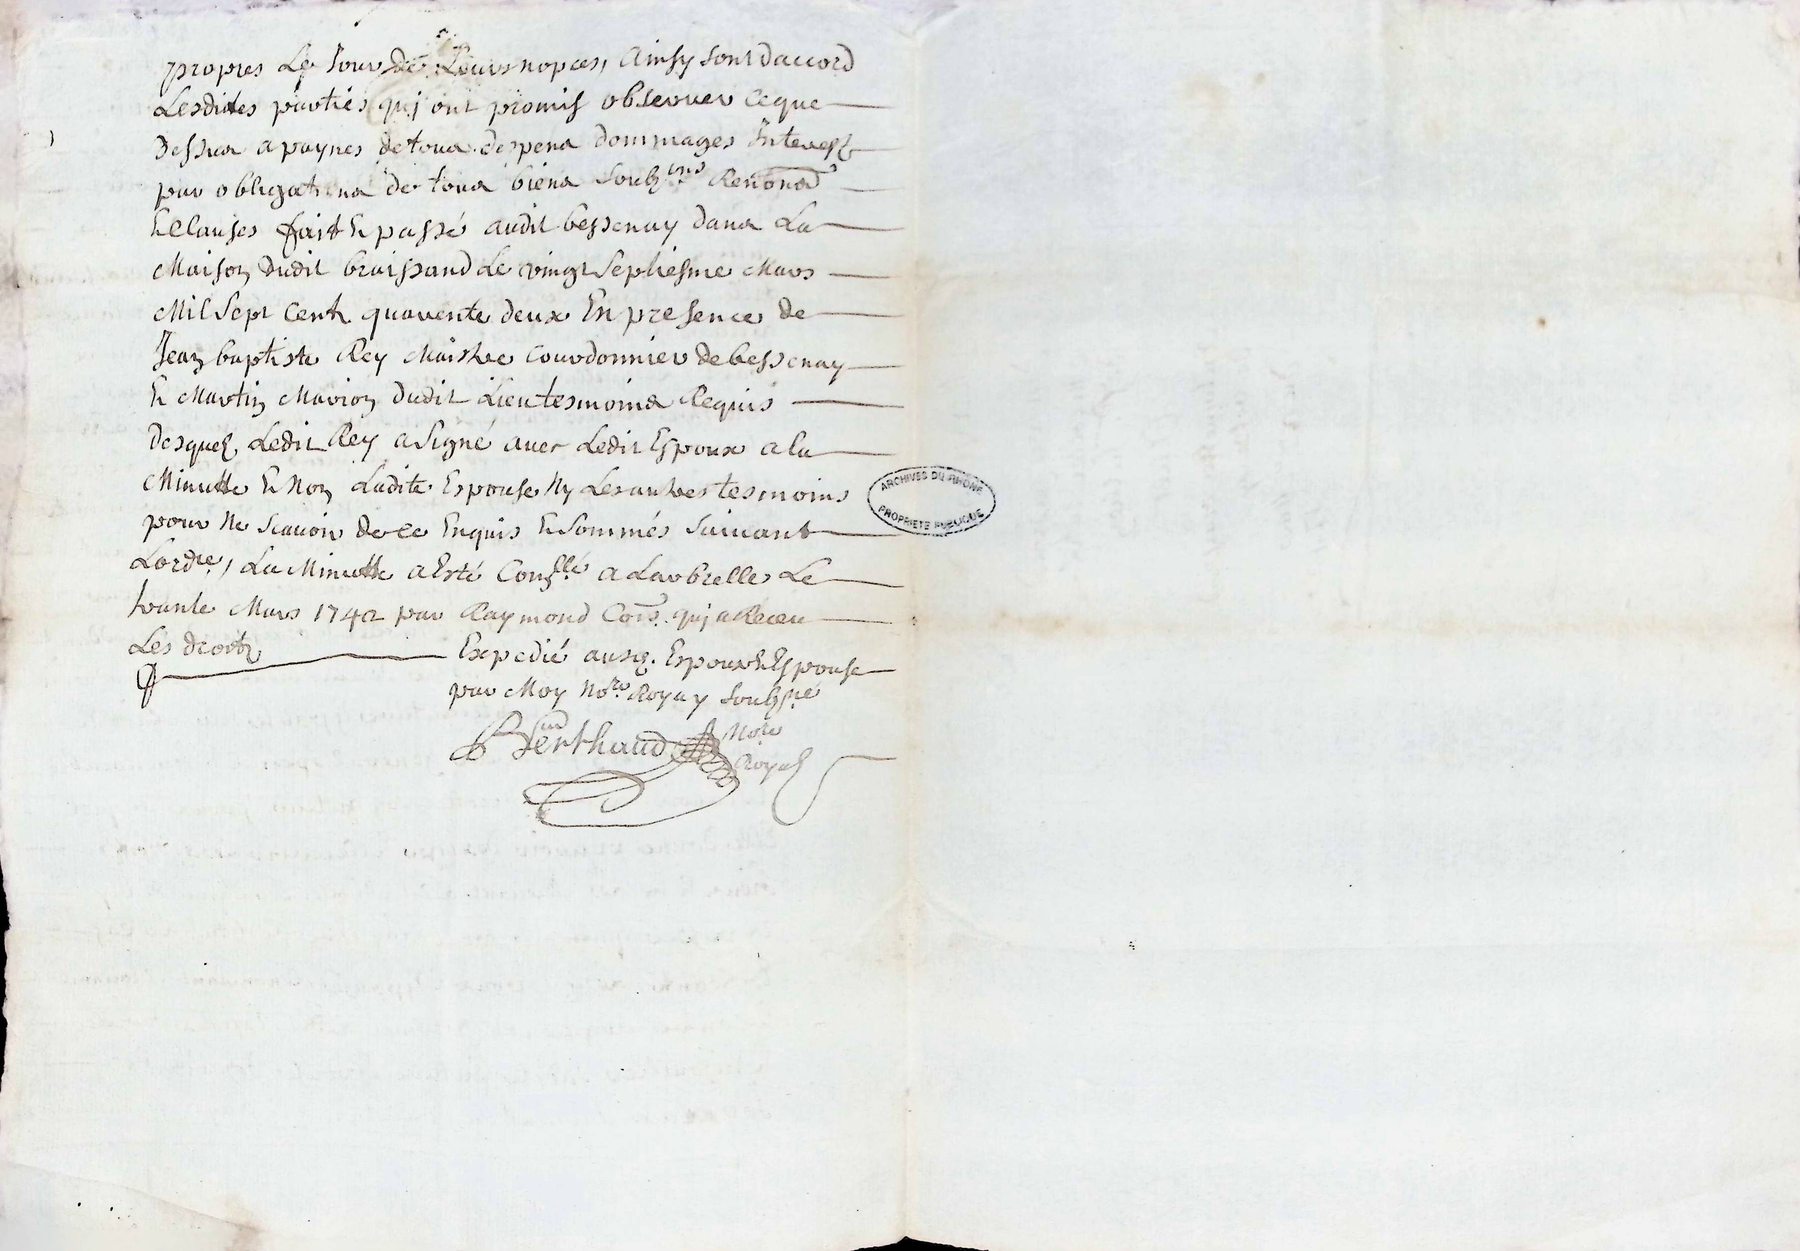 propres Le Jour de Leurs nopces, Ainsy sont daccord
Lesdittes parties quj ont promis observer ceque
Dessus a paynes detous despens dommages Interestz
par obligations de tous biens soubz.ons Renons
Et Clauses fait Et passé audit bessenay dans La
Maison dudit braissand Le vingt septiesme Mars
Mil sept Centz quarente deux En presence de
Jean baptiste Rey Maistre courdonnier de bessenay
Et Martin Marion dudit Lieu tesmoins Requis
Desquelz Ledit Rey a signé avec Ledit Espoux a la
Minutte Et Non Ladite Espouse Ny Les autres tesmoins
pour Ne scavoir de ce Enquis Et sommés suivant
Lord.re, La Minutte a Esté Con.llé a Larbrelle Le
trante Mars 1742 par Raymond Cois. quj a Receu
Les droitz
Expedié ausd. Espoux Et Espouse
par Moy No.re Royay soubz.né
Berthaud No.re
Royal
ARCHIVES DU RHÔNE
PROPRIÉTÉ PUBLIQUE